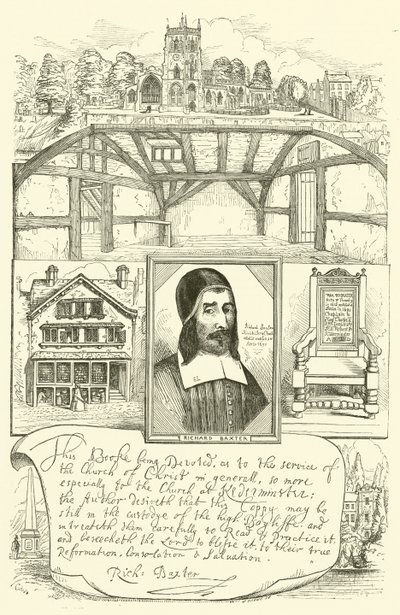 RICHARD BAXTER
This Booke being Devoted, as to the service of
the Church of Christ in generall, so more
especially to the Church at Kederminster:
the Author desireth that this Coppy may be
still in the custodye of the high Bayliffe: and
intreateth them carefully to Read & Practice it.
and beseecheth the Lord to blesse it to their true
Reformation, Consolation & Salvation.
Rich: Baxter